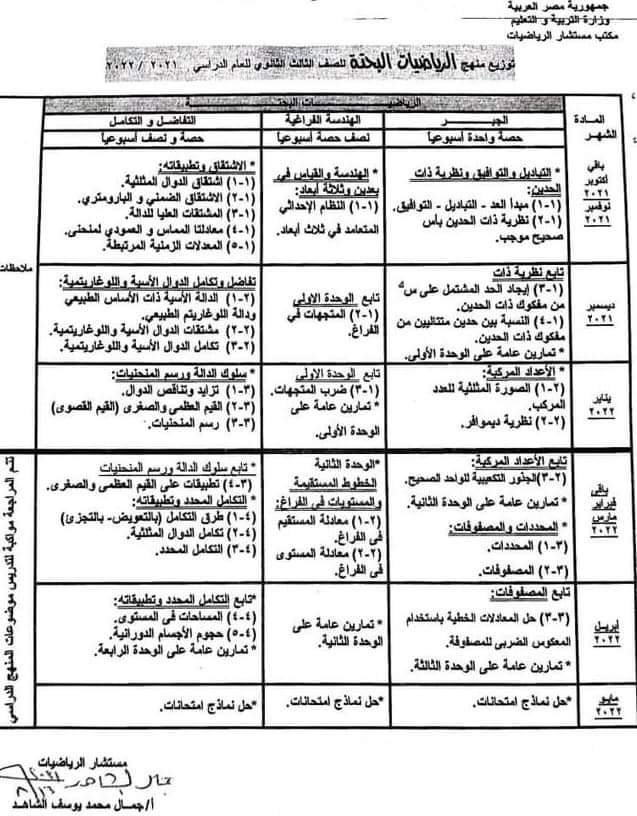 جمهورية مصر العربية
وزارة التربية و التعليم
مكتب مستشار الرياضيات
توزيع منهج الرياضيات البحتة للصف الثالث الثانوي للعام الدراسي ٢٠٢١ / ٢٠٢٢
المادة
الشهر
الرياضيـــــات البحتـــــة
الجبــر
الهندسة الفراغية
التفاضل و التكامل
حصة واحدة أسبوعياً
نصف حصة أسبوعياً
حصة و نصف أسبوعياً
باقي
أكتوبر
٢٠٢١
نوفمبر
٢٠٢١
* التباديل والتوافيق ونظرية ذات
الحدين:
(١-١) مبدأ العد - التباديل - التوافيق.
(٢-١) نظرية ذات الحدين بأس
صحيح موجب.
* الهندسة والقياس في
بعدين وثلاثة أبعاد:
(١-١) النظام الإحداثي
المتعامد في ثلاث أبعاد.
* الاشتقاق وتطبيقاته:
(١-١) اشتقاق الدوال المثلثية.
(٢-١) الاشتقاق الضمني و البارومتري.
(٣-١) المشتقات العليا للدالة.
(٤-١) معادلتا المماس و العمودي لمنحنى.
(٥-١) المعدلات الزمنية المرتبطة.
ملاحظات
ديسمبر
٢٠٢١
تابع نظرية ذات
(٣-١) إيجاد الحد المشتمل على س
من مفكوك ذات الحدين.
(٤-١) النسبة بين حدين متتاليين من
مفكوك ذات الحدين.
* تمارين عامة على الوحدة الأولى.
تابع الوحدة الاولى
(٢-١) المتجهات في
الفراغ.
تفاضل وتكامل الدوال الأسية واللوغاريتمية:
(١-٢) الدالة الأسية ذات الأساس الطبيعي
ودالة اللوغاريتم الطبيعي.
(٢-٢) مشتقات الدوال الأسية واللوغاريتمية.
(٣-٢) تكامل الدوال الأسية واللوغاريتمية.
يناير
٢٠٢٢
* الأعداد المركبة:
(١-٢) الصورة المثلثية للعدد
المركب.
(٢-٢) نظرية ديموافر.
تابع الوحدة الاولى
(٣-١) ضرب المتجهات.
* تمارين عامة على
الوحدة الأولى.
* سلوك الدالة ورسم المنحنيات:
(١-٣) تزايد وتناقص الدوال.
(٢-٣) القيم العظمى والصغرى (القيم القصوى)
(٣-٣) رسم المنحنيات.
باقى
فبراير
مارس
٢٠٢٢
تابع الأعداد المركبة:
(٣-٢) الجذور التكعيبية للواحد الصحيح.
* تمارين عامة على الوحدة الثانية.
* المحددات والمصفوفات:
(١-٣) المحددات.
(٢-٣) المصفوفات.
*الوحدة الثانية
الخطوط المستقيمة
والمستويات فى الفراغ:
(١-٢) معادلة المستقيم
فى الفراغ.
(٢-٢) معادلة المستوى
فى الفراغ.
* تابع سلوك الدالة ورسم المنحنيات
(٤-٣) تطبيقات على القيم العظمى والصغرى.
* التكامل المحدد وتطبيقاته:
(١-٤) طرق التكامل (بالتعويض- بالتجزئ)
(٢-٤) تكامل الدوال المثلثية.
(٣-٤) التكامل المحدد.
تتم المراجعة مواكبة لتدريس موضوعات المنهج الدراسي
أبريل
٢٠٢٢
تابع المصفوفات:
(٣-٣) حل المعادلات الخطية باستخدام
المعكوس الضربى للمصفوفة.
* تمارين عامة على الوحدة الثالثة.
* تمارين عامة على
الوحدة الثانية.
*تابع التكامل المحدد وتطبيقاته:
(٤-٤) المساحات فى المستوى.
(٥-٤) حجوم الأجسام الدورانية.
* تمارين عامة على الوحدة الرابعة.
مايو
٢٠٢٢
*حل نماذج امتحانات.
*حل نماذج امتحانات.
*حل نماذج امتحانات.
مستشار الرياضيات
أ/جمال محمد يوسف الشاهد